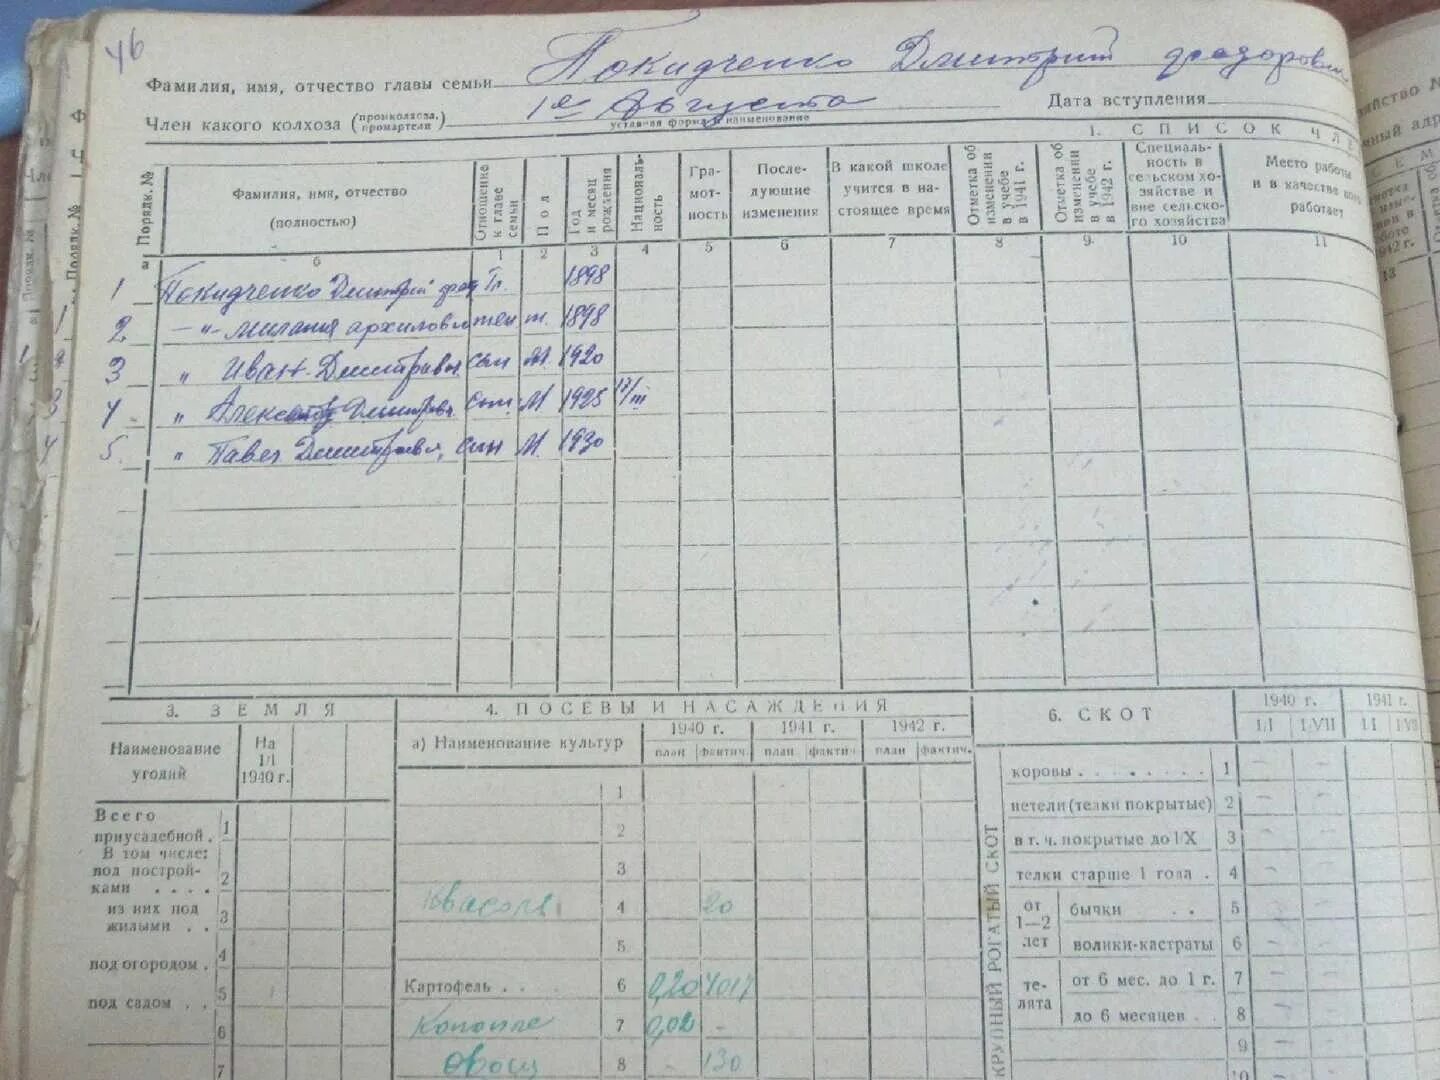 46
Фамилия, имя, отчество главы семьи Покидченко Дмитрий Федорович
Член какого колхоза (промколхоза, промартели) 1е Августа Дата вступления
уставная форма и наименование
1. СПИСОК ЧЛЕ
Порядк. № Фамилия, имя, отчество (полностью) Отношение к главе семьи Пол Год и месяц рождения Националь- ность Гра- мот- ность После- дующие изменения В какой школе учится в на- стоящее время Отметка об изменении в учебе в 1941 г. Отметка об изменении в учебе в 1942 г. Специаль- ность в сельском хо- зяйстве и вне сельско- го хозяйства Место работы и в качестве кого работает
а б 1 2 3 4 5 6 7 8 9 10 11
1 Покидченко Дмитрий Фед Гл. 1898
2 —"— Милания Архиповна жен ж. 1898
3 " Иван Дмитрович сын М. 1920
4 " Александр Дмитрович сын М 1925 17/III
5. " Павел Дмитрович сын М. 1930
3. ЗЕМЛЯ
Наименование угодий На 1/I 1940 г.
Всего приусадебной . 1
В том числе: под построй- ками . . . . 2
из них под жилыми . . 3
под огородом . 4
под садом . . 5
6
7
4. ПОСЕВЫ И НАСАЖДЕНИЯ
а) Наименование культур 1940 г. 1941 г. 1942 г.
план фактич. план фактич. план фактич.
1
2
3
Квасоля 4 20
5
Картофель . . . 6 0,20
Конопле 7 0,02 -
Овощ 8 130
6. СКОТ 1940 г. 1941 г.
I/I I/VII I/I I/VII
КРУПНЫЙ РОГАТЫЙ СКОТ
коровы . . . . . . . . 1 - -
нетели (телки покрытые) 2 - -
в т. ч. покрытые до 1/X 3 - -
телки старше 1 года . 4 - -
от 1—2 лет бычки . . 5 - -
волики-кастраты 6 - -
те- лята от 6 мес. до 1 г. 7 - -
до 6 месяцев . . 8 - -
9
10